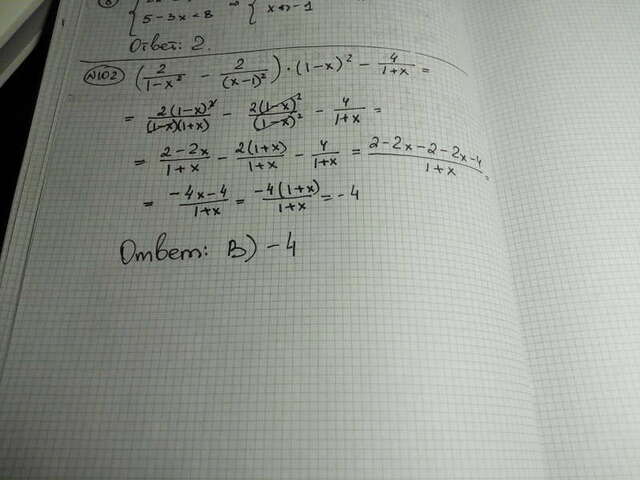 5 - 3x = 8 ⇒ { x = -1
Ответ: 2.
№102 (2/(1-x²) - 2/(x-1)²) · (1-x)² - 4/(1+x) =
= 2(1-x)²/((1-x)(1+x)) - 2(1-x)²/(1-x)² - 4/(1+x) =
= (2-2x)/(1+x) - 2(1+x)/(1+x) - 4/(1+x) = (2-2x-2-2x-4)/(1+x) =
= (-4x-4)/(1+x) = -4(1+x)/(1+x) = -4
Ответ: B) -4